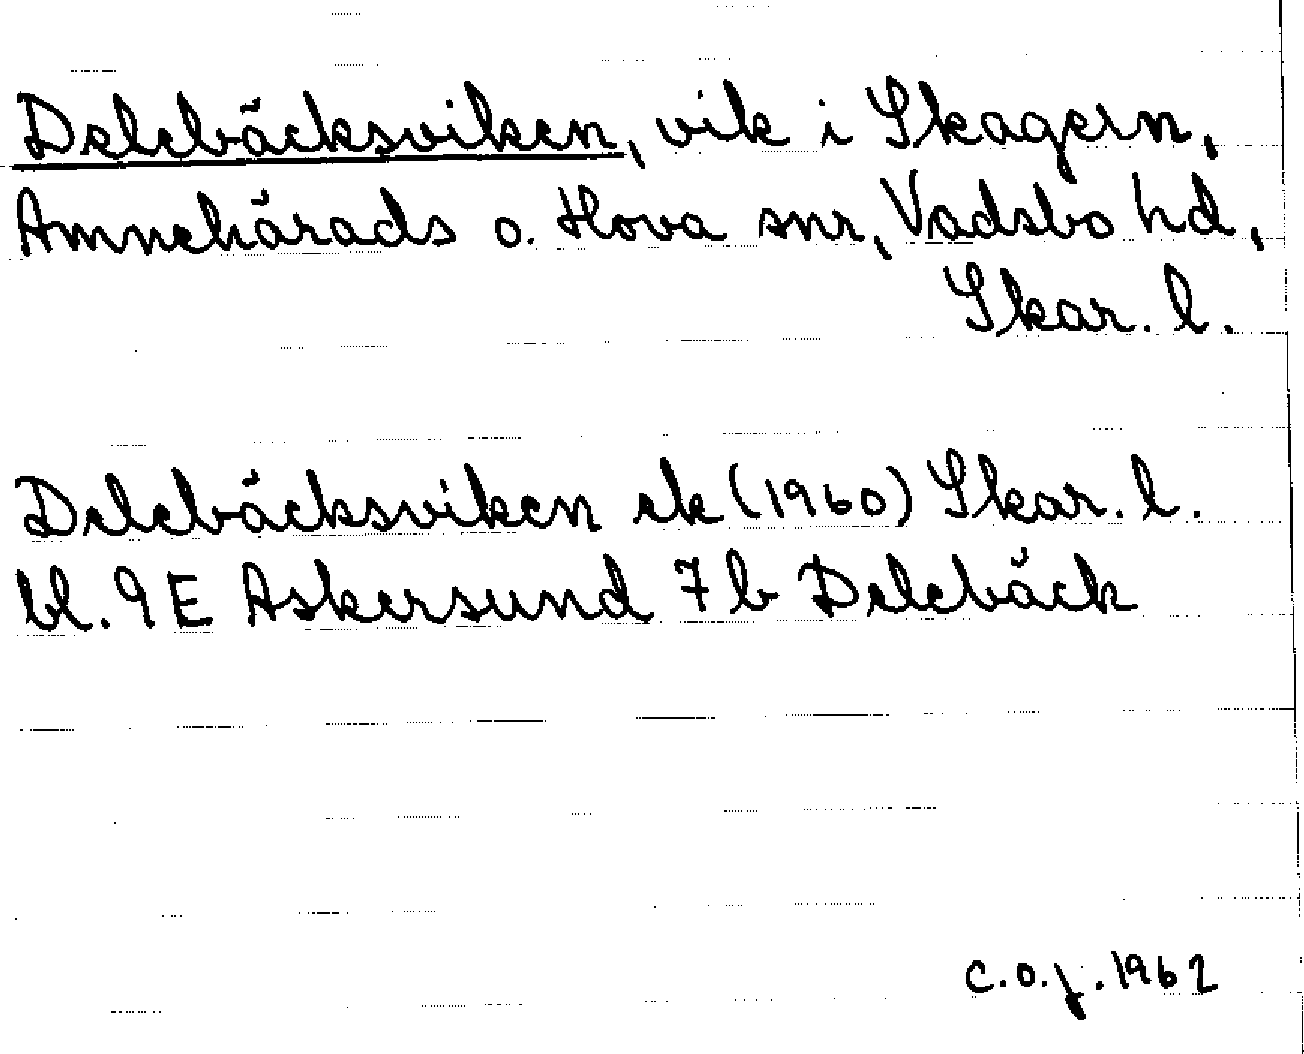 Delebäcksviken, vik i Skagern,
Amnehärads o. Hova snr, Vadsbo hd,
Skar. l.
Delebäcksviken ek (1960) Skar. l.
bl. 9E Askersund 7b Delebäck
C.O.J. 1962